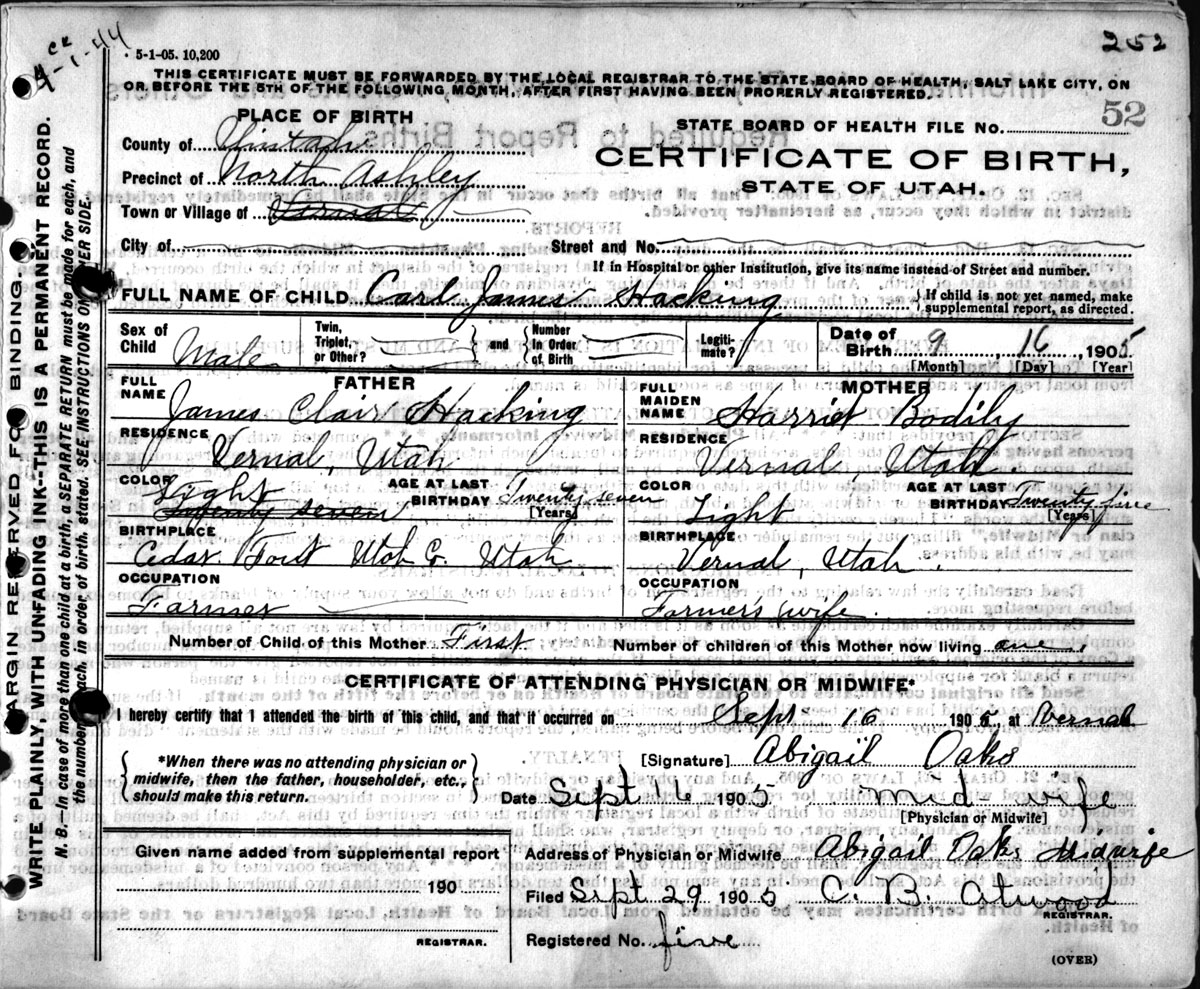 CK
4-1-44
5-1-05. 10,200
252
THIS CERTIFICATE MUST BE FORWARDED BY THE LOCAL REGISTRAR TO THE STATE BOARD OF HEALTH, SALT LAKE CITY, ON
OR BEFORE THE 5TH OF THE FOLLOWING MONTH, AFTER FIRST HAVING BEEN PROPERLY REGISTERED.
PLACE OF BIRTH
STATE BOARD OF HEALTH FILE NO. 52
County of Uintah
CERTIFICATE OF BIRTH,
Precinct of North Ashley
STATE OF UTAH.
Town or Village of Vernal
City of
Street and No.
If in Hospital or other Institution, give its name instead of Street and number.
FULL NAME OF CHILD Carl James Hacking
If child is not yet named, make
supplemental report, as directed.
Sex of
Child Male
Twin,
Triplet,
or Other?
and
Number
In Order
of Birth
Legiti-
mate?
Date of
Birth 9 16 1905
[Month] [Day] [Year]
FATHER
FULL
NAME James Clair Hacking
RESIDENCE
Vernal, Utah
COLOR Light
Twenty seven
AGE AT LAST
BIRTHDAY Twenty seven
[Years]
BIRTHPLACE
Cedar Fort Utah Co. Utah
OCCUPATION
Farmer
MOTHER
FULL
MAIDEN
NAME Harriet Bodily
RESIDENCE
Vernal Utah
COLOR
Light
AGE AT LAST
BIRTHDAY Twenty five
[Years]
BIRTHPLACE
Vernal, Utah.
OCCUPATION
Farmers wife.
Number of Child of this Mother First
Number of children of this Mother now living one.
CERTIFICATE OF ATTENDING PHYSICIAN OR MIDWIFE*
I hereby certify that I attended the birth of this child, and that it occurred on Sept 16 1905, at Vernal
*When there was no attending physician or
midwife, then the father, householder, etc.,
should make this return.
[Signature] Abigail Oaks
Date Sept 16 1905 Mid-wife
[Physician or Midwife]
Given name added from supplemental report
190
REGISTRAR.
Address of Physician or Midwife Abigail Oaks Midwife
Filed Sept 29 1905 C. B. Atwood
REGISTRAR.
Registered No. five
(OVER)
MARGIN RESERVED FOR BINDING.
WRITE PLAINLY WITH UNFADING INK--THIS IS A PERMANENT RECORD.
N. B.--In case of more than one child at a birth, a SEPARATE RETURN must be made for each, and
the number of each, in order of birth, stated. SEE INSTRUCTIONS ON OTHER SIDE.